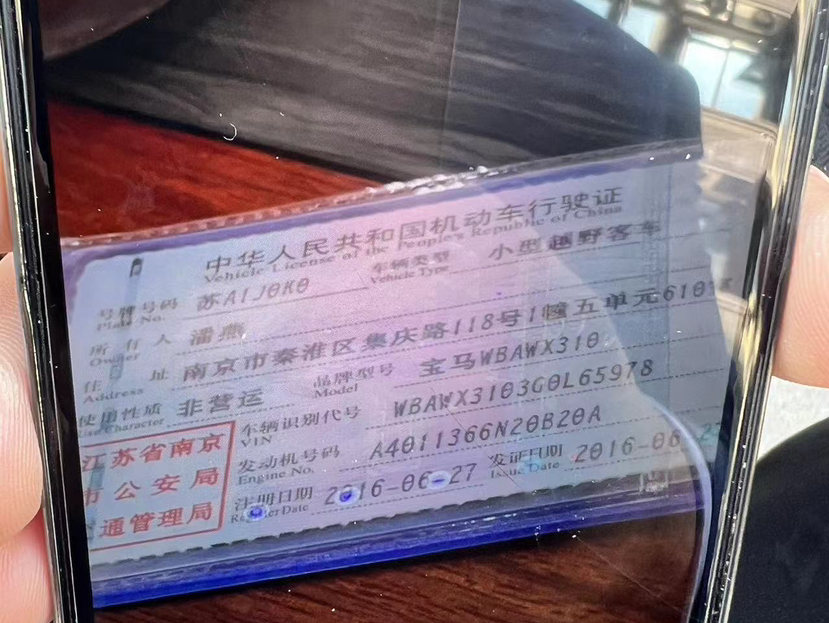 中华人民共和国机动车行驶证
Vehicle License of the People's Republic of China
号牌号码 苏A1J0K0 车辆类型 小型越野客车
Plate No. Vehicle Type
所有人 潘燕
Owner
住址 南京市秦淮区集庆路118号1幢五单元610室
Address
使用性质 非营运 品牌型号 宝马WBAWX310
Use Character Model
车辆识别代号 WBAWX3103G0L65978
VIN
发动机号码 A4011366N20B20A
Engine No.
注册日期 2016-06-27 发证日期 2016-06-27
Register Date Issue Date
江苏省南京
市公安局
通管理局